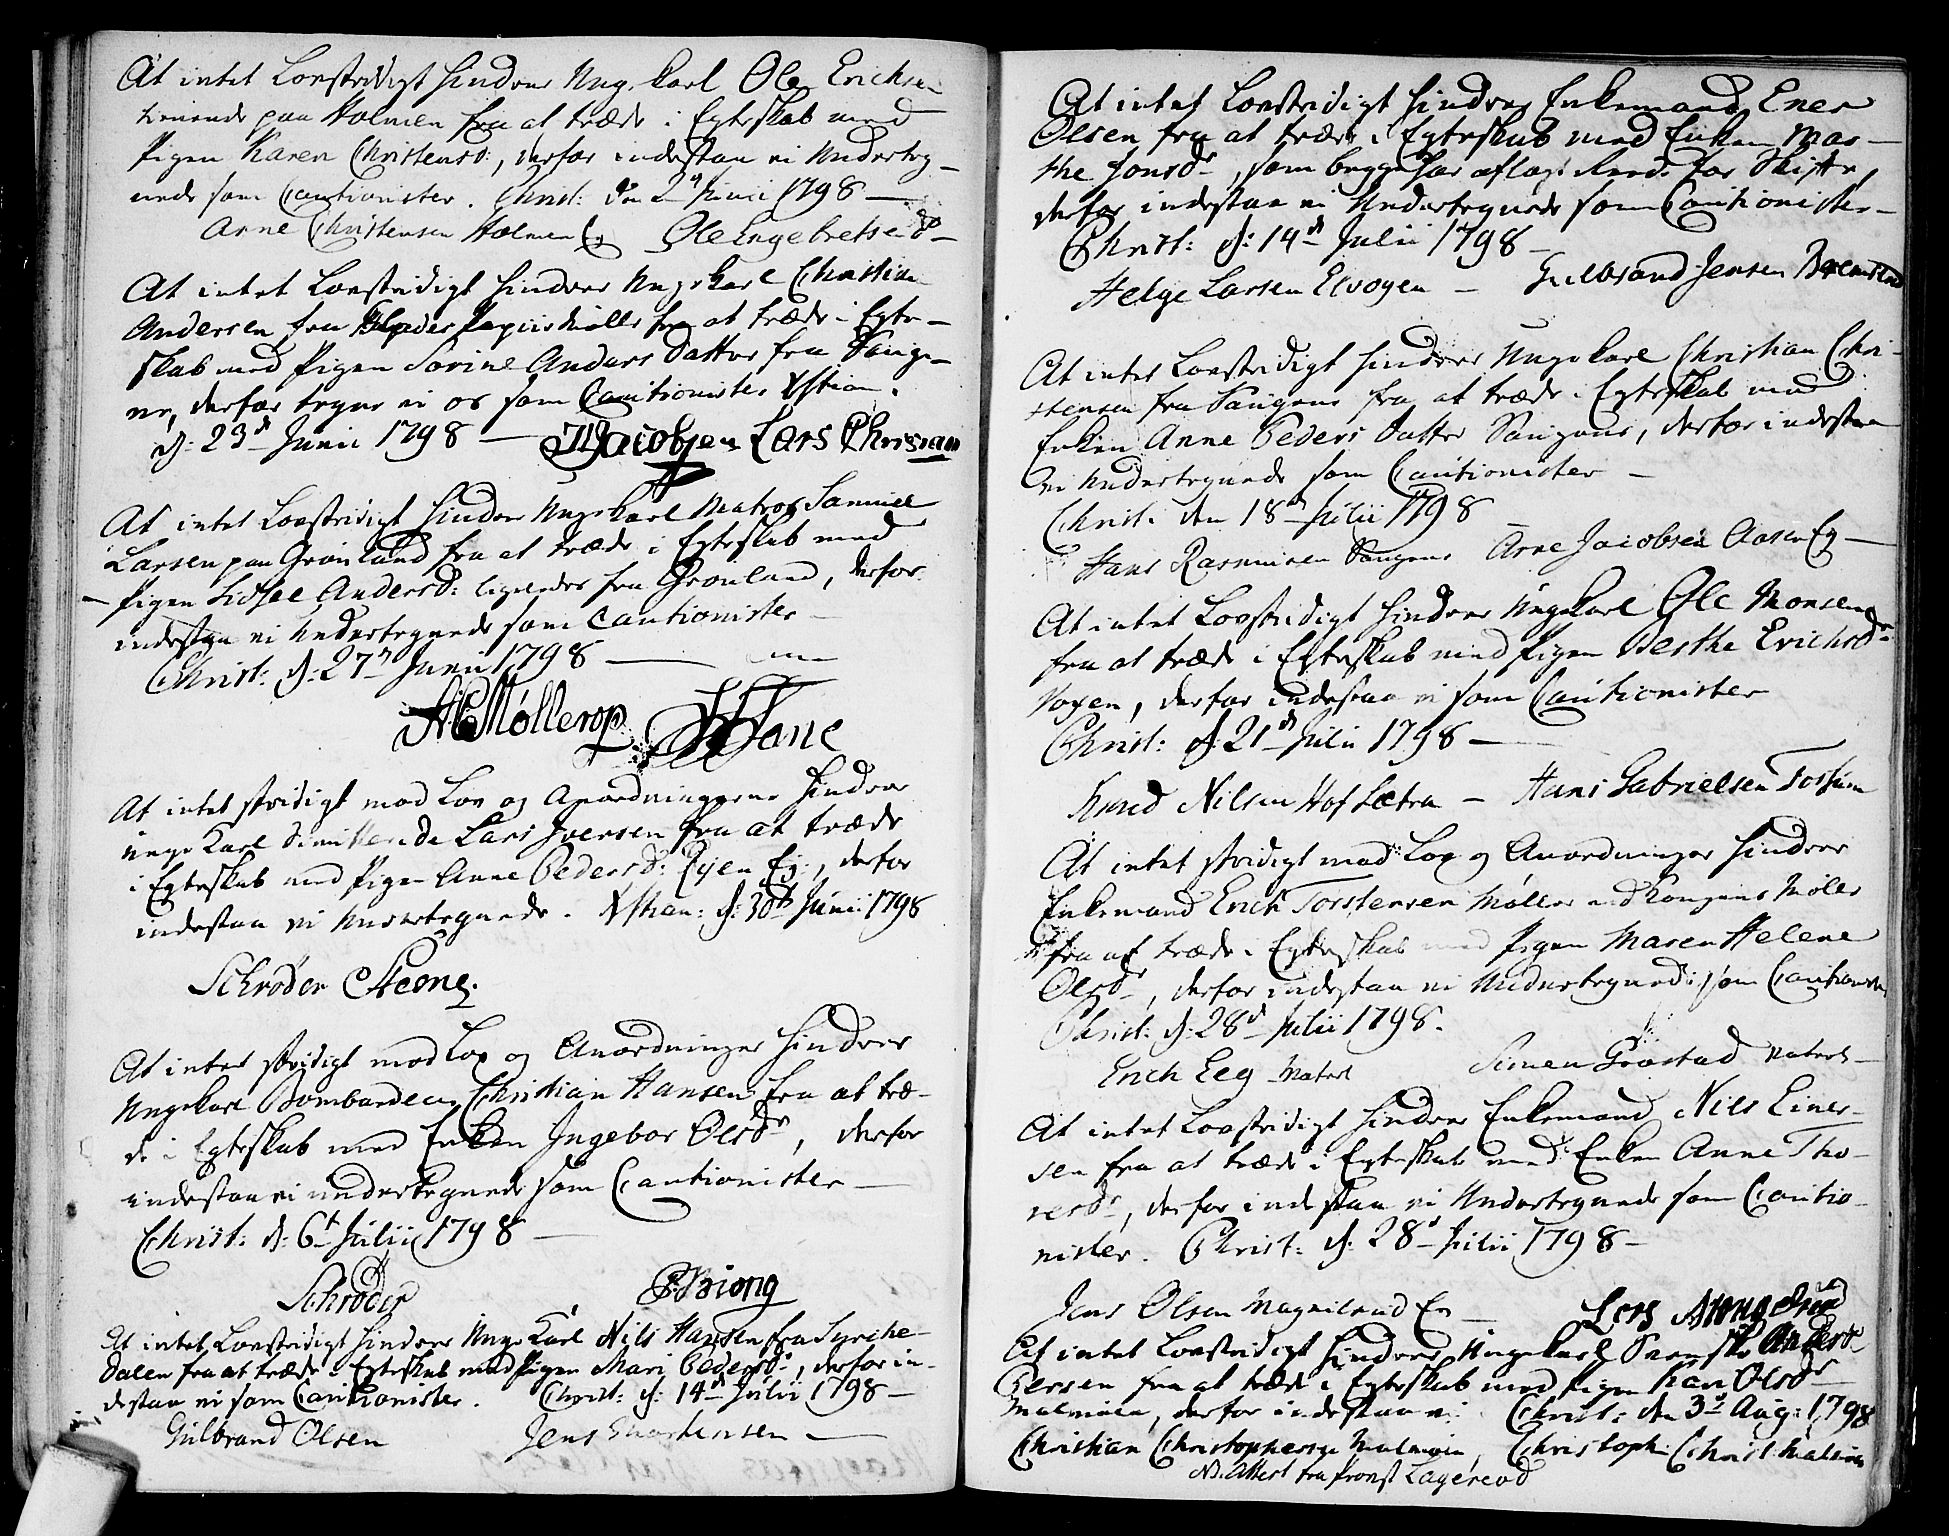 At intet Lovstridigt hindrer Ungekarl Ole Erichsen
tienende paa Holmen fra at træde i Egteskab med
Pigen Karen Christensd:, derfor indestaa vi Underteg-
nede som Cautionister. Christ: den 2den Junii 1798 —
Arne Christensen Holmen Eg Ole Engebretsen
At intet Lovstridigt hindrer Ungekarl Christian
Andersen fra Papiirmølle fra at træde i Egte-
skab med Pigen Sorine Anders Datter fra Sauge-
ne, derfor tegne vi os som Cautionister Xstian
d: 23d Junii 1798 — Jacobsen Lars Christian
At intet Lovstridigt hindrer Ungekarl Matros Samuel
Larsen paa Grønland fra at træde i Egteskab med
Pigen Lidsee Andersd: ligeledes fra Grønland, derfor
indestaa vi Undertegnede som Cautionister —
Christ: d: 27d Junii 1798 —
Møllerop Fane
At intet stridigt mod Lov og Anordningerne hindrer
Unge Karl Dimitterede Lars Iversen fra at træde
i Egteskab med Pigen Anne Pedersd: Ryen Ej:, derfor
indestaa vi Undertegnede. Xstian: d: 30te Junii 1798
Schrøder Steene.
At intet stridigt mod Lov og Anordninger hindrer
Ungekarl Bombardeer Christian Hansen fra at træ-
de i Egteskab med Enken Ingebor Olsdr, derfor
indestaa vi undertegnede som Cautionister —
Christ: d: 6t Julii 1798 —
Schrøder Briong
At intet Lovstridigt hindrer Unge Karl Nils Hansen fra Syrche-
dalen fra at træde i Egteskab med Pigen Mari Pedersdr, derfor in-
destaa vi som Cautionister. Christ: d: 14d Julii 1798 —
Gulbrand Olsen Jens Mortensen —
At intet Lovstridigt hindrer Enkemand Ener
Olsen fra at træde i Egteskab med Enken Mar-
the Jonsdr, som begge har aflagt Rede for Skifte,
derfor indestaa vi Undertegnede som Cautionister —
Christ: d: 14d Julii 1798 —
Helge Larsen Elvogen — Gulbrand Jensen
At intet Lovstridigt hindrer Ungekarl Christian Chri-
stensen fra Saugene fra at træde i Egteskab med
Enken Anne Peders Datter Saugene, derfor indestaa
vi Undertegnede som Cautionister —
Christ: den 18d Julii 1798
Hans Rasmusen Saugene Arne Jacobsen Aasen Eg —
At intet Lovstridigt hindrer Ungekarl Ole Monsen
fra at træde i Egteskab med Pigen Berthe Erichsdr
Voxen, derfor indestaa vi som Cautionister
Christ: d: 21d Julii 1798 —
Knud Nilsen Hof Sætra — Hans Gabrielsen Fossum
At intet stridigt mod Lov og Anordninger hindrer
Enkemand Erich Torstensen Møller ved Kongens Mølle
fra at træde i Egteskab med Pigen Maren Helene
Olsdr, derfor indestaa vi Undertegnede som Cautionister
Christ: d: 28d Julii 1798.
Erich Eeg Simen Grøstad
At intet Lovstridigt hindrer Enkemand Nils Einer-
sen fra at træde i Egteskab med Enken Anne Tho-
resdr, derfor indestaa vi Undertegnede som Cautio-
nister. Christ: d: 28d Julii 1798 —
Jens Olsen Eg — Lers
At intet Lovstridigt hindrer Ungekarl Svenske Anders
Persen fra at træde i Egteskab med Pigen Kari Olsdr
Malmøen, derfor indestaa vi. Christ: den 3d Aug: 1798
Christian Christophersen Malmøen Christoph: Christ: Malmøen
NB. Attest fra Provst Lagesend